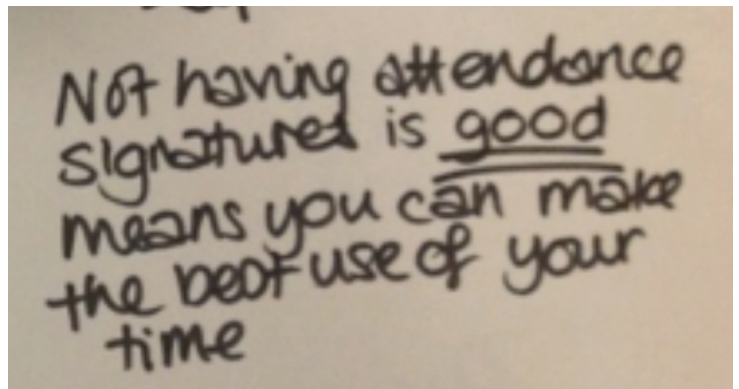 Not having attendance
signatures is good
means you can make
the best use of your
time